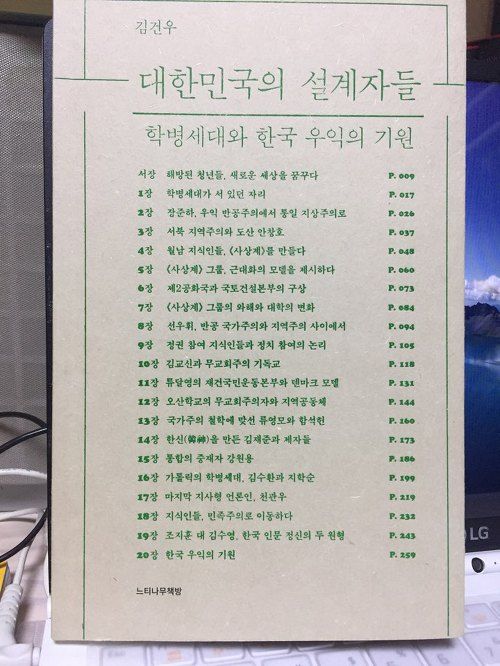 김건우
대한민국의 설계자들
학병세대와 한국 우익의 기원
서장 해방된 청년들, 새로운 세상을 꿈꾸다 P. 009
1장 학병세대가 서 있던 자리 P. 017
2장 장준하, 우익 반공주의에서 통일 지상주의로 P. 026
3장 서북 지역주의와 도산 안창호 P. 037
4장 월남 지식인들, 《사상계》를 만들다 P. 048
5장 《사상계》 그룹, 근대화의 모델을 제시하다 P. 060
6장 제2공화국과 국토건설본부의 구상 P. 073
7장 《사상계》 그룹의 와해와 대학의 변화 P. 084
8장 선우휘, 반공 국가주의와 지역주의 사이에서 P. 094
9장 정권 참여 지식인들과 정치 참여의 논리 P. 105
10장 김교신과 무교회주의 기독교 P. 118
11장 류달영의 재건국민운동본부와 덴마크 모델 P. 131
12장 오산학교의 무교회주의자와 지역공동체 P. 144
13장 국가주의 철학에 맞선 류영모와 함석헌 P. 160
14장 한신(韓神)을 만든 김재준과 제자들 P. 173
15장 통합의 중재자 강원용 P. 186
16장 가톨릭의 학병세대, 김수환과 지학순 P. 199
17장 마지막 지사형 언론인, 천관우 P. 219
18장 지식인들, 민족주의로 이동하다 P. 232
19장 조지훈 대 김수영, 한국 인문 정신의 두 원형 P. 243
20장 한국 우익의 기원 P. 259
느티나무책방
LG